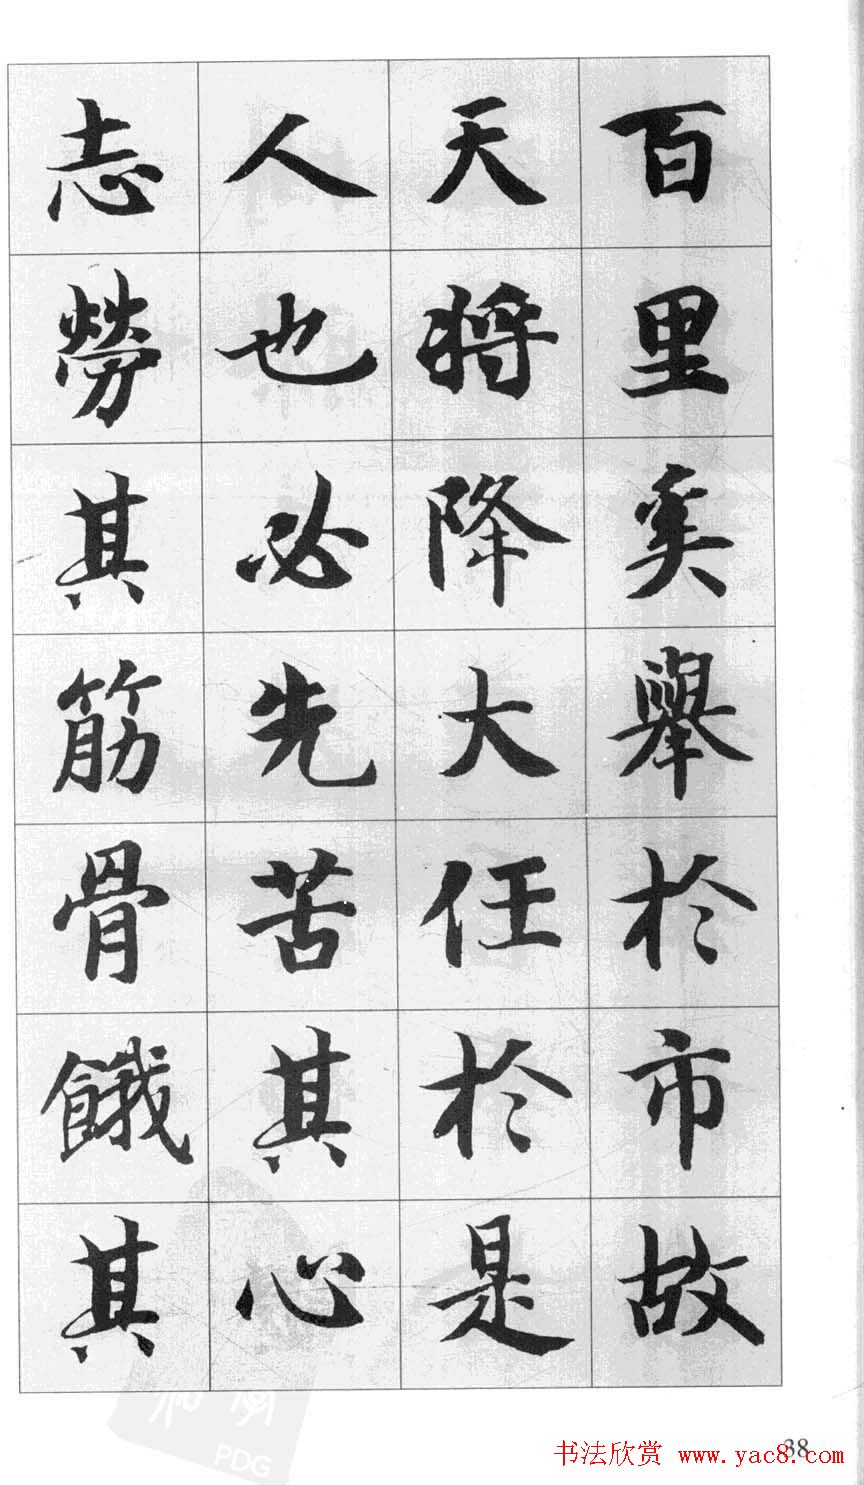 百里奚舉於市故
天将降大任於是
人也必先苦其心
志勞其筋骨餓其
38
书法欣赏 www.yac8.com
PDG